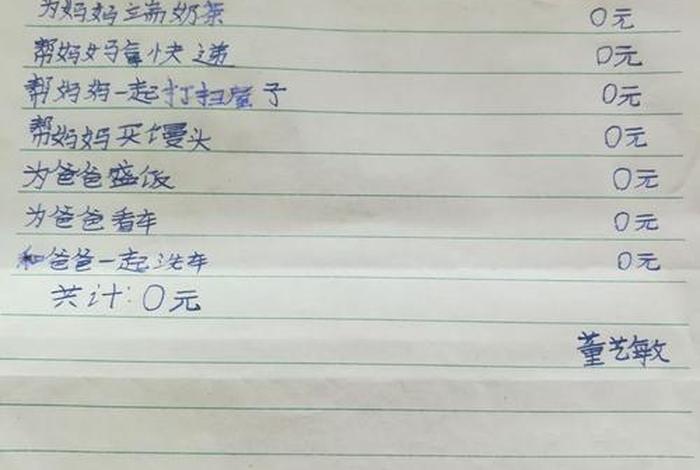 为妈妈端奶茶 0元
帮妈妈拿快递 0元
帮妈妈一起打扫屋子 0元
帮妈妈买馒头 0元
为爸爸盛饭 0元
为爸爸看车 0元
和爸爸一起洗车 0元
共计:0元
董艺敏